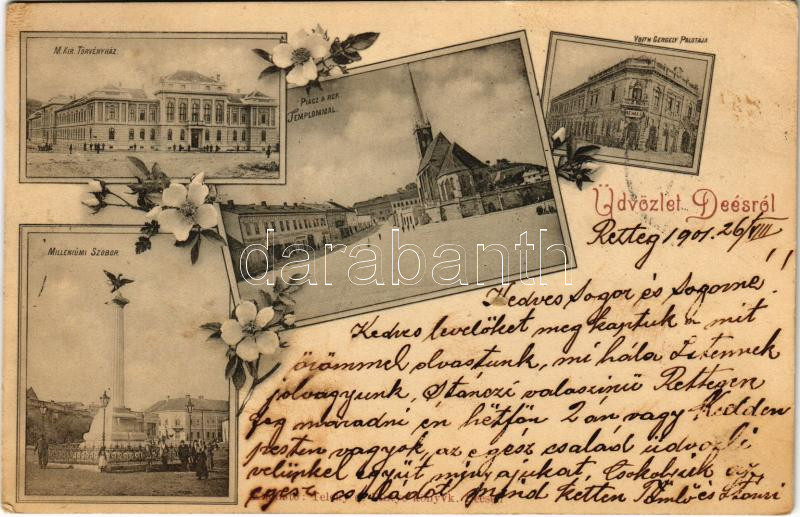 M. Kir. Törvényház.
Piacz a ref.
Templommal.
Voith Gergely Palotája
Üdvözlet Deésről
Milleniúmi Szobor
Retteg 1901. 26/VIII
Kedves Sogor és Sogorne!!
Kedves levelöket meg kaptuk a mit
örömmel olvastunk, mi hála Istennek
jol vagyunk, Stánczi valaszinü Rettegen
fog maradni én hétfőn 2án vagy Kedden
pesten vagyok, az egész család üdvözli
velünkel együt mingajukat, Csokolsuk az
egész családot, mind ketten
darabanth